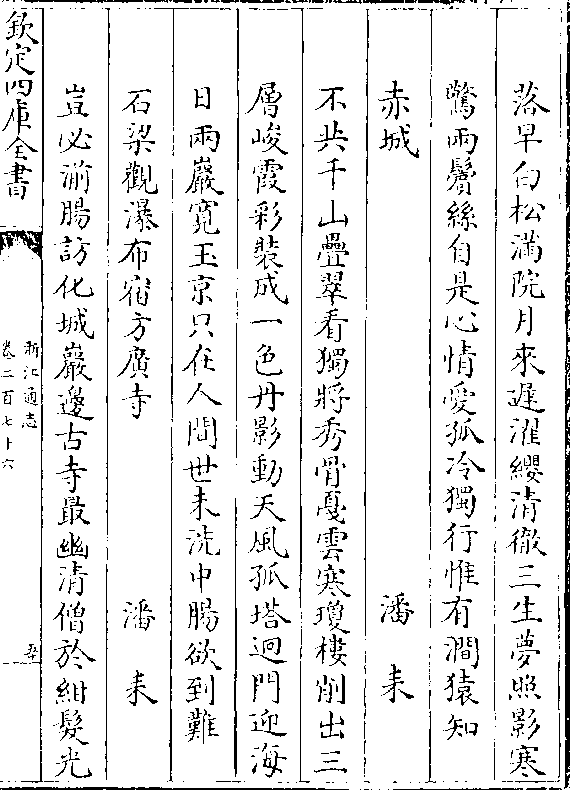 落早白松滿院月來遲濯纓清徹三生夢照影寒
驚兩鬢絲自是心情愛孤冷獨行惟有澗猿知
赤城 潘耒
不共千山疊翠看獨將秀骨戛雲寒瓊樓削出三
層峻霞彩裝成一色丹影動天風孤塔迥門迎海
日兩巖寛玉京只在人間世未洗中腸欲到難
石梁觀瀑布宿方廣寺 潘耒
豈必湔腸訪化城巖邊古寺最幽清僧於紺髮光
欽定四庫全書
浙江通志
卷二百七十六